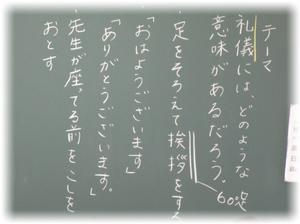 テーマ
礼儀には、どのような
意味があるだろう。
足をそろえて挨拶をする
「おはようございます」
「ありがとうございます。」
先生が座ってる前をこしを
おとす